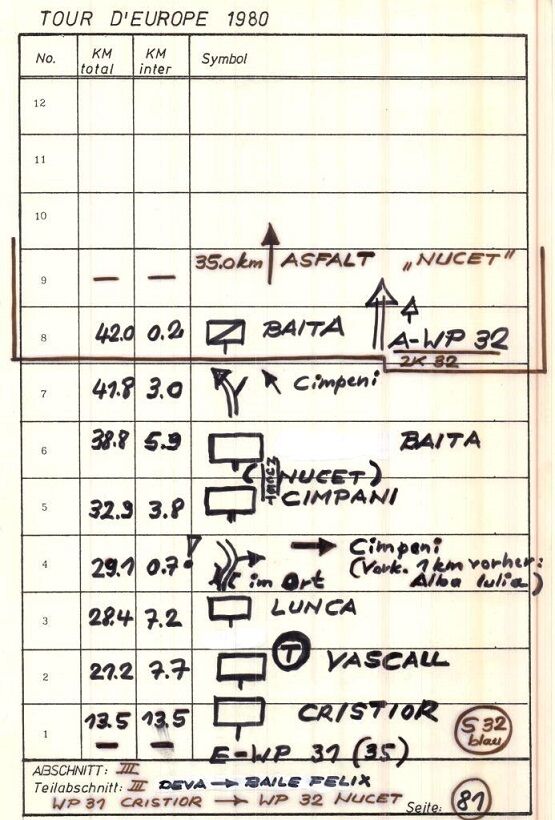 TOUR D'EUROPE 1980
No. KM total KM inter Symbol
12
11
10
35.0km ASFALT „NUCET"
9 — —
8 42.0 0.2 BAITA A-WP 32
ZK 32
7 41.8 3.0 Cimpeni
6 38.8 5.9 BAITA
(NUCET)
5 32.9 3.8 CIMPANI
4 29.1 0.7! im Ort Cimpeni
(Vork. 1 km vorher:
Alba Iulia)
3 28.4 7.2 LUNCA
2 21.2 7.7 T VASCALL
1 13.5 13.5 CRISTIOR S 32 blau
— — E-WP 31 (35)
ABSCHNITT: III
Teilabschnitt: III DEVA → BAILE FELIX
WP 31 CRISTIOR → WP 32 NUCET Seite: 81